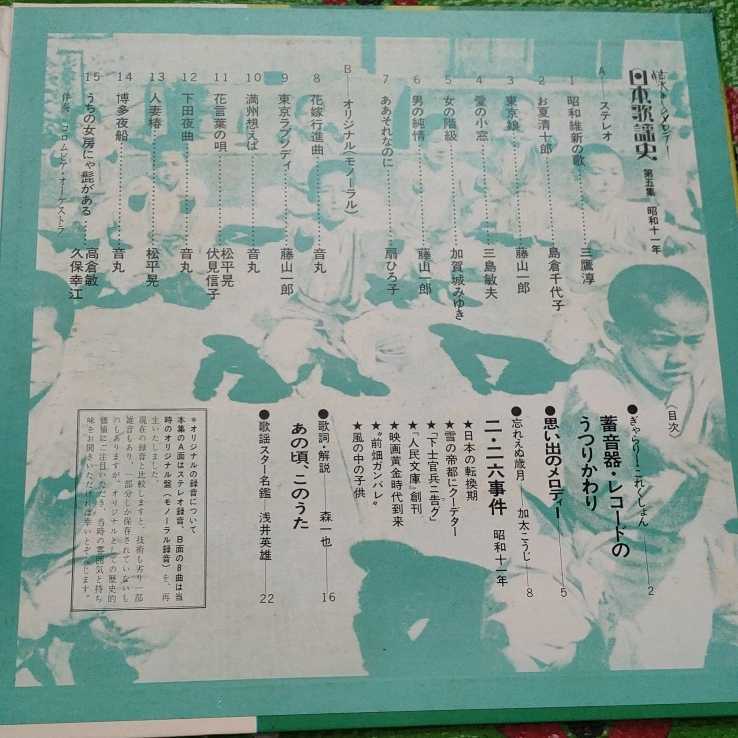 日本歌謡史 第五集 昭和十一年
A―ステレオ
1 昭和維新の歌……三鷹淳
2 お夏清十郎……島倉千代子
3 東京娘……藤山一郎
4 愛の小窓……三島敏夫
5 女の階級……加賀城みゆき
6 男の純情……藤山一郎
7 ああそれなのに……扇ひろ子
B―オリジナル(モノーラル)
8 花嫁行進曲……音丸
9 東京ラプソディ……藤山一郎
10 満州想えば……音丸
11 花言葉の唄……松平晃
伏見信子
12 下田夜曲……音丸
13 人妻椿……松平晃
14 博多夜船……音丸
15 うちの女房にゃ髭がある……高倉敏
久保幸江
伴奏 コロムビア・オーケストラ
〈目次〉
●ぎゃらりー・これくしょん
蓄音器・レコードの
うつりかわり――2
●思い出のメロディー――5
●忘れえぬ歳月――加太こうじ――8
二・二六事件 昭和十一年
★日本の転換期
★雪の帝都にクーデター
★「下士官兵ニ告グ」
★「人民文庫」創刊
★映画黄金時代到来
★“前畑ガンバレ”
★風の中の子供
●歌詞・解説 森一也――16
あの頃、このうた
●歌謡スター名鑑 浅井英雄――22
＊オリジナルの録音について
本集のA面はステレオ録音、B面の8曲は当
時のオリジナル盤(モノーラル録音)を、再
生いたしました。
現在の録音と比較しますと、技術も劣り一部
雑音もあり、一部分しか保存されていないし
のもありますが、オリジナルとしての歴史的
価値にご注目いただき、当時の雰囲気と持ち
味をお聞きいただければ幸いとぞんじます。